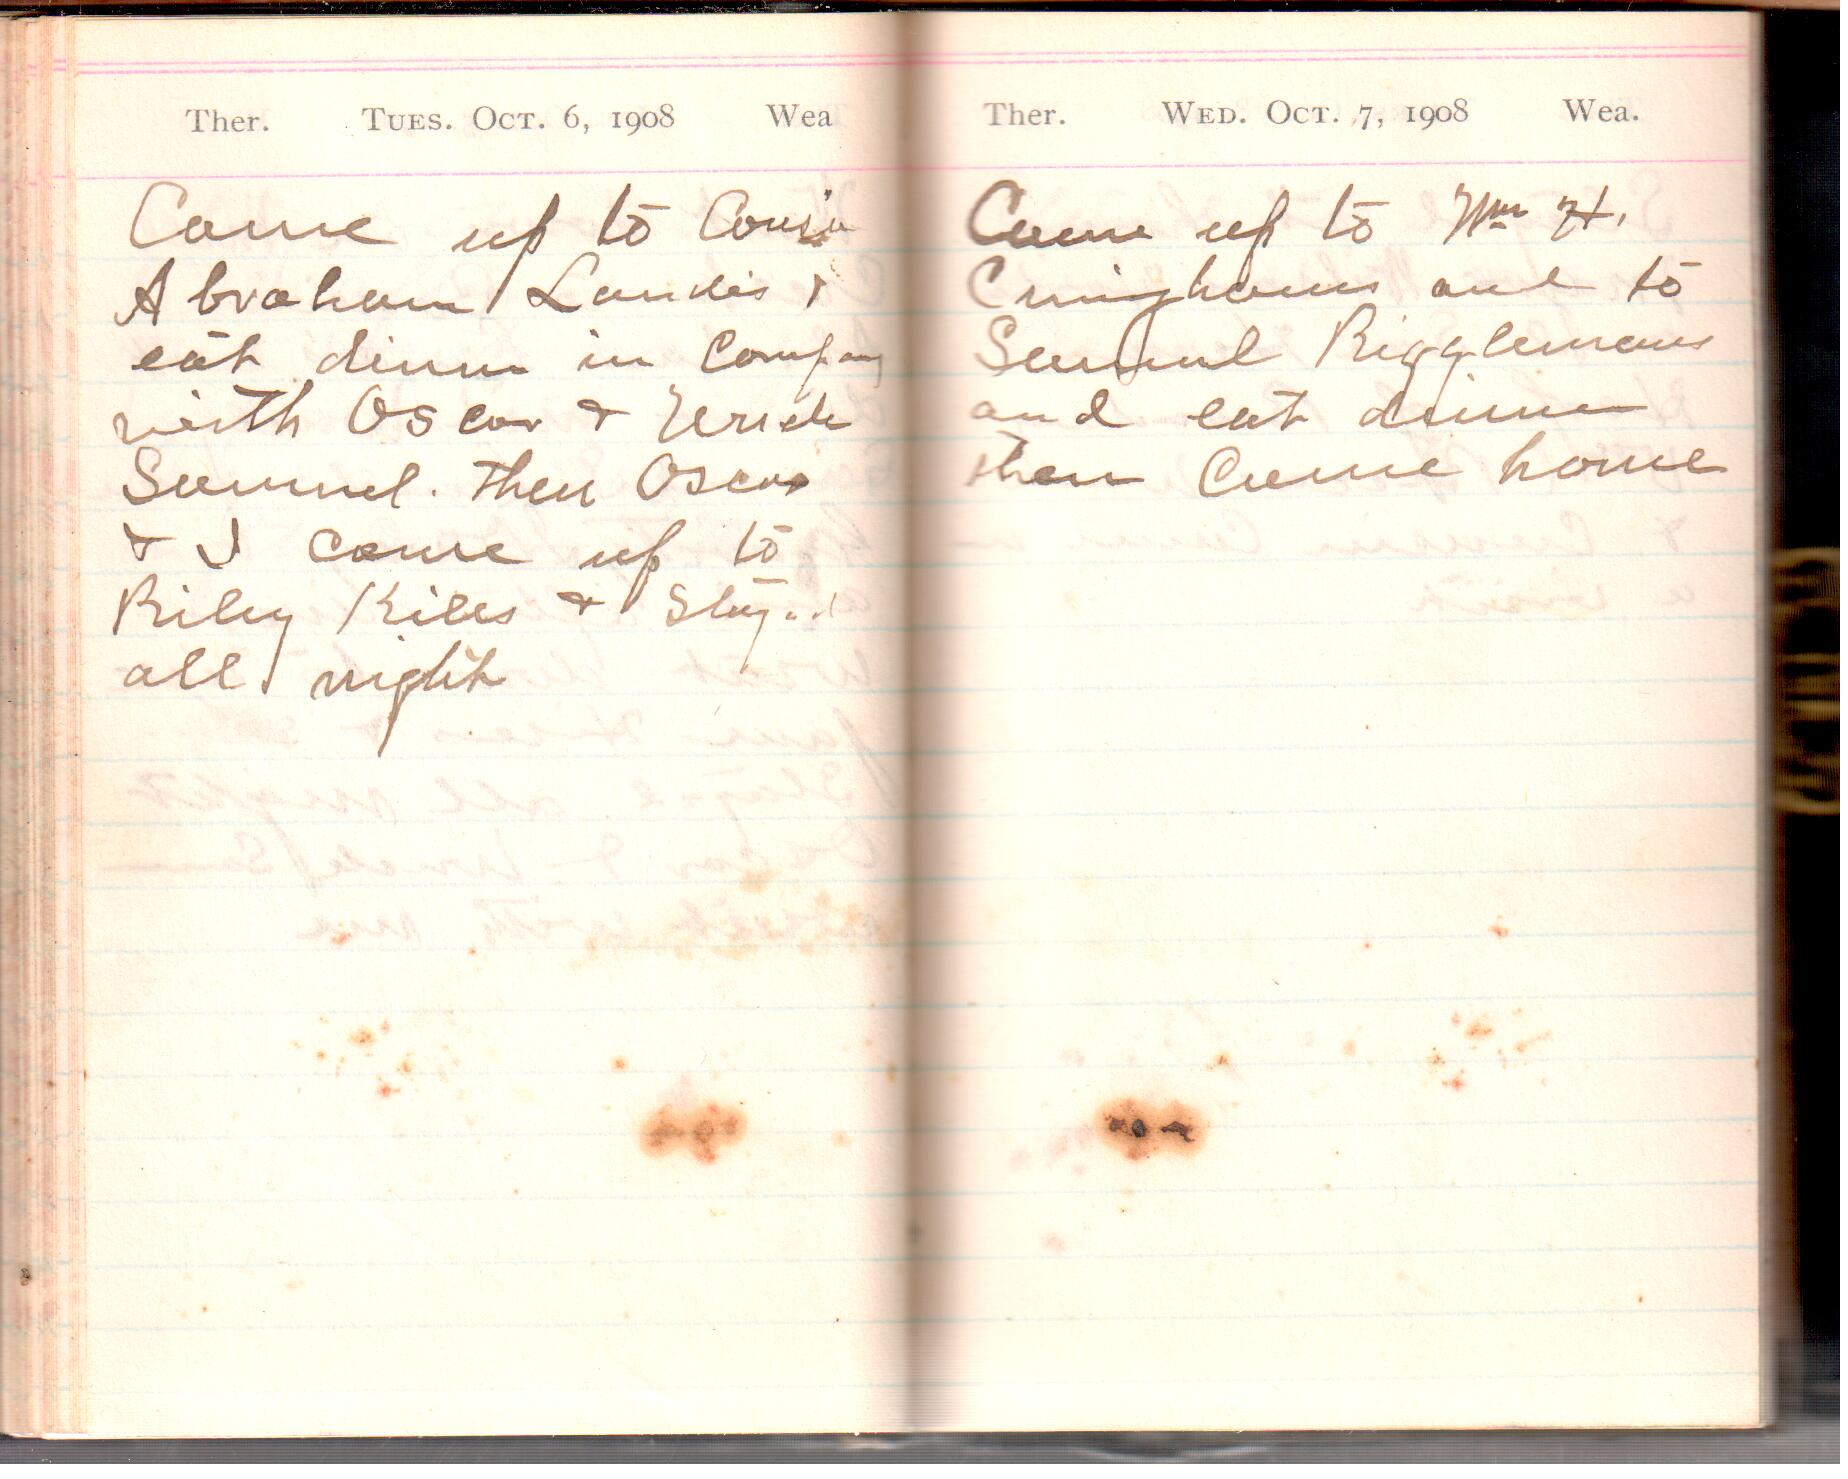 Ther. Tues. Oct. 6, 1908 Wea
Came up to Cousin
Abraham Landis &
eat dinner in Company
with Oscar & Uncle
Samuel. Then Oscar
& I came up to
Riley Kiles & Stayed
all night
Ther. Wed. Oct. 7, 1908 Wea.
Came up to Wm H.
and to
Samuel Rigglemans
and eat dinner
then Came home